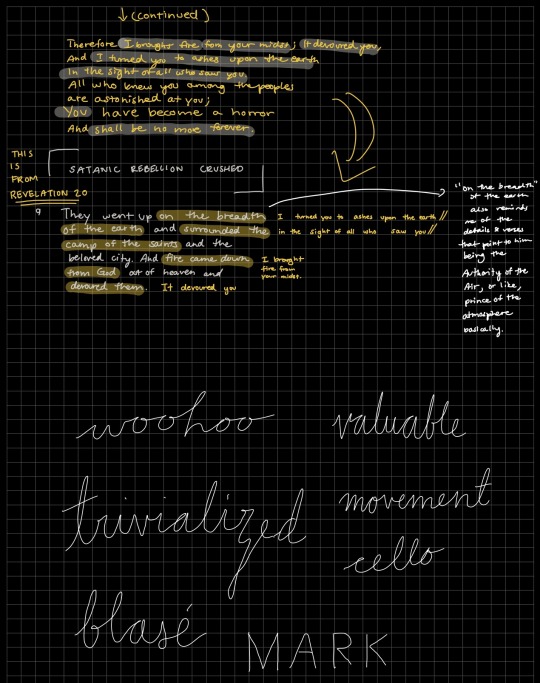 ↓ (continued)
Therefore I brought fire from your midst; It devoured you,
And I turned you to ashes upon the earth
In the sight of all who saw you.
All who knew you among the peoples
are astonished at you;
You have become a horror
And shall be no more forever.
THIS
IS
FROM
REVELATION 20
SATANIC REBELLION CRUSHED
9 They went up on the breadth
of the earth and surrounded the
camp of the saints and the
beloved city. And fire came down
from God out of heaven and
devoured them. It devoured you
I turned you to ashes upon the earth //
in the sight of all who saw you //
I brought
fire from
your midst.
"on the breadth"
of the earth
also reminds
me of the
details & verses
that point to him
being the
Authority of the
Air, or like,
prince of the
atmosphere
basically.
woohoo
valuable
trivialized
movement
cello
blasé
MARK